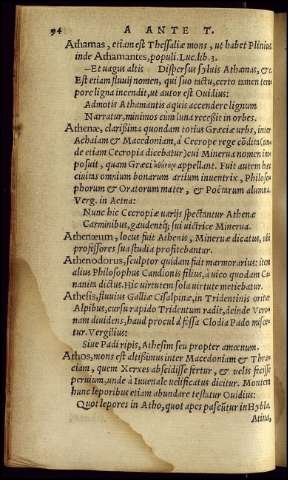 94 A ANTE T.
Athamas, etiam est Thessaliæ mons, ut habet Plinius
inde Athamantes, populi. Luc. lib. 3.
—Et uagus altis Dispersus syluis Athamas, &c.
Est etiam fluuij nomen, qui suo tactu, certo tamen tem-
pore ligna incendit, ut autor est Ouidius:
Admotis Athamantis aquis accendere lignum
Narratur, minimos cum luna recessit in orbes.
Athenæ, clarißima quondam totius Græciæ urbs, inter
Achaiam & Macedoniam, à Cecrope rege cōdita (un-
de etiam Cecropia dicebatur) cui Minerua nomen im-
posuit, quam Græci appellant. Fuit autem hæc
ciuitas omnium bonarum artium inuentrix, Philoso-
phorum & Oratorum mater, & Poëtarum alumna.
Verg. in Aetna:
Nunc hic Cecropiæ uarijs spectantur Athenæ
Carminibus, gaudentq́; sui uictrice Minerua.
Athenæum, locus fuit Athenis, Mineruæ dicatus, ubi
professores sua studia profitebantur.
Athenodorus, sculptor quidam fuit marmorarius: item
alius Philosophus Candionis filius, à uico quodam Ca-
nanim dictus. Hic uirtutem sola uirtute metiebat.
Athesis, fluuius Galliæ Cisalpinæ, in Tridentinis oritur
Alpibus, cursu rapido Tridentum radit, deinde Vero-
nam diuidens, haud procul à fossa Clodia Pado misce-
tur. Vergilius:
Siue Padi ripis, Athesim seu propter amœnum.
Athos, mons est altißimus inter Macedoniam & Thra-
ciam, quem Xerxes abscidisse fertur, & uelis fecisse
peruium, unde à Iuuenale uelificatus dicitur. Montem
hunc leporibus etiam abundare testatur Ouidius:
Quot lepores in Atho, quot apes pascūtur in Hybla.
Atina,